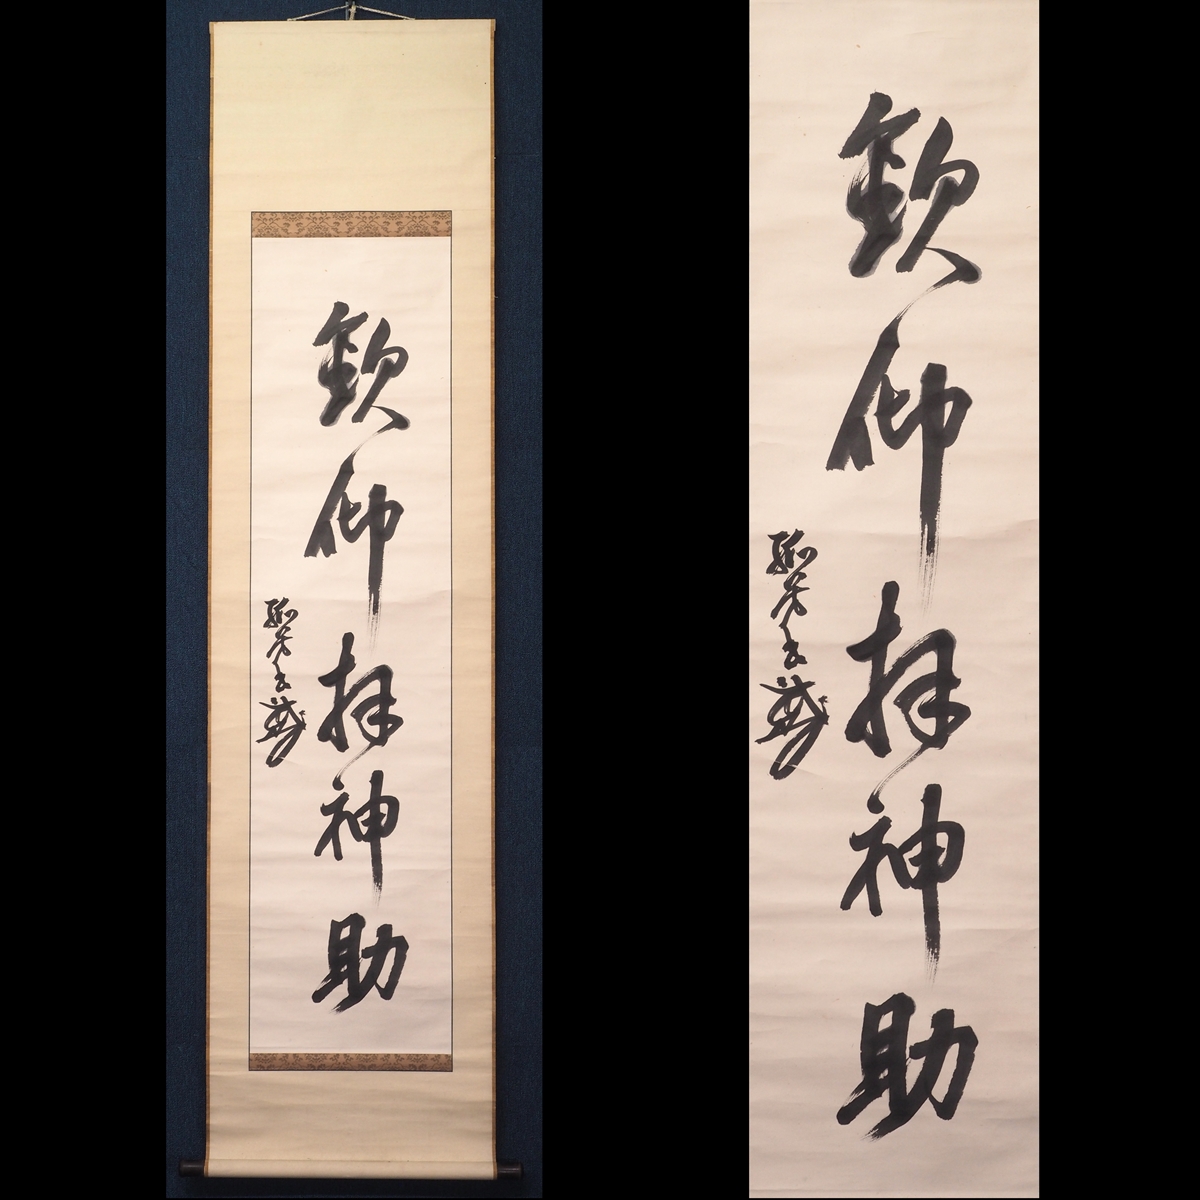 欽仰拝神助
欽仰拝神助